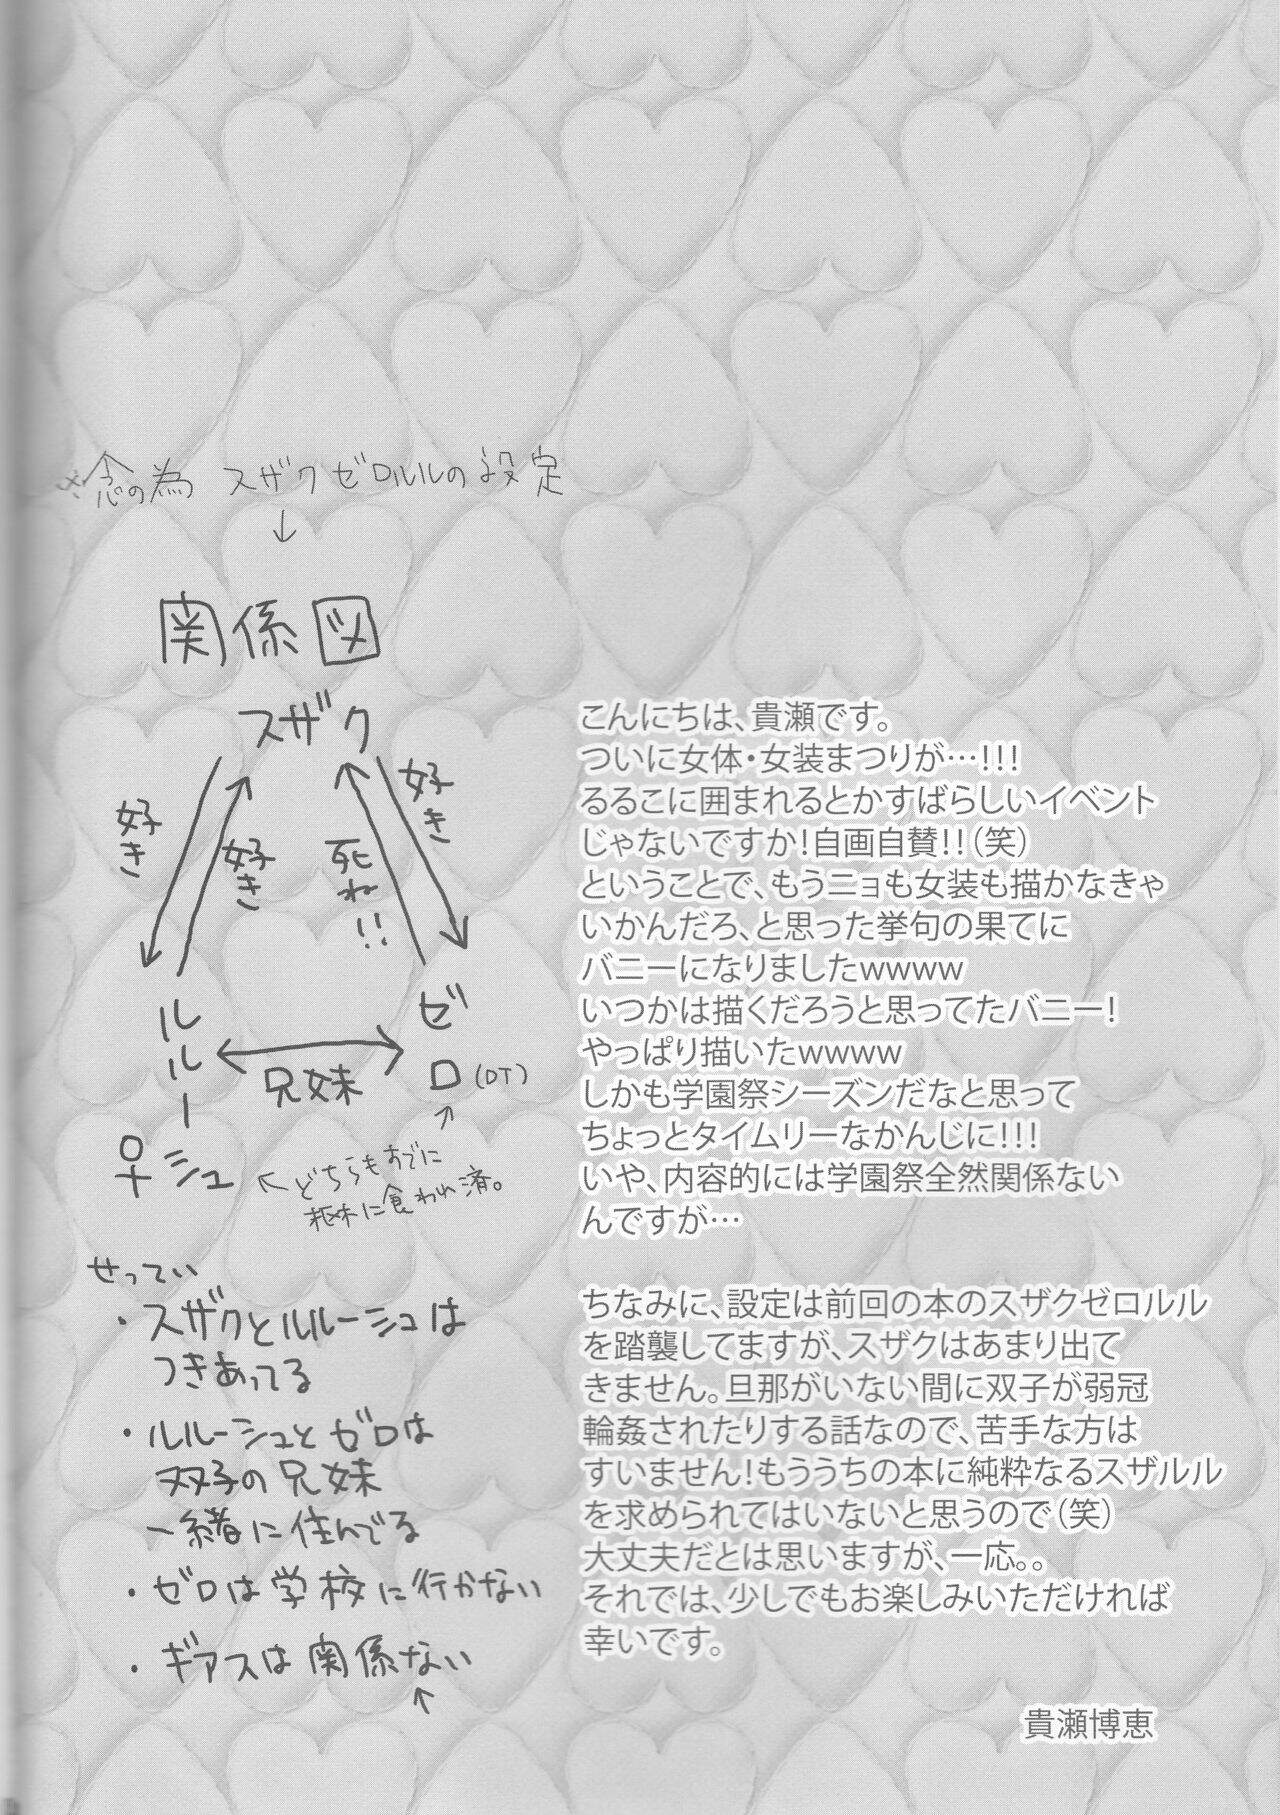 ※念の為 スザクゼロルルの設定
↓
関係図
スザク
好き
好き
死ね!!
好き
ルルーシュ
♀
ゼロ
(DT)
兄妹
←どちらもすでに
枢木に食われ済。
せってい
・スザクとルルーシュは
つきあってる
・ルルーシュとゼロは
双子の兄妹
一緒に住んでる
・ゼロは学校に行かない
・ギアスは関係ない
↑
こんにちは、貴瀬です。
ついに女体・女装まつりが…!!!
るるこに囲まれるとかすばらしいイベント
じゃないですか!自画自賛!!(笑)
ということで、もうニョも女装も描かなきゃ
いかんだろ、と思った挙句の果てに
バニーになりましたwwww
いつかは描くだろうと思ってたバニー!
やっぱり描いたwwww
しかも学園祭シーズンだなと思って
ちょっとタイムリーなかんじに!!!
いや、内容的には学園祭全然関係ない
んですが…
ちなみに、設定は前回の本のスザクゼロルル
を踏襲してますが、スザクはあまり出て
きません。旦那がいない間に双子が弱冠
輪姦されたりする話なので、苦手な方は
すいません!もううちの本に純粋なるスザルル
を求められてはいないと思うので(笑)
大丈夫だとは思いますが、一応。。
それでは、少しでもお楽しみいただければ
幸いです。
貴瀬博恵